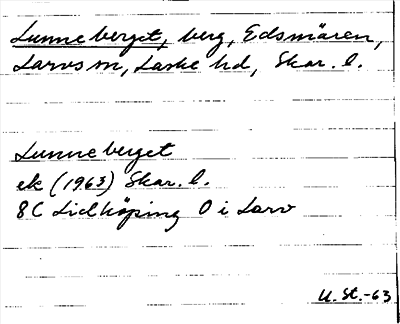 Lunneberget, berg, Edsmären,
Larvs sn, Laske hd, Skar. l.
Lunneberget
ek (1963) Skar. l.
8C Lidköping O i Larv
U. St. -63